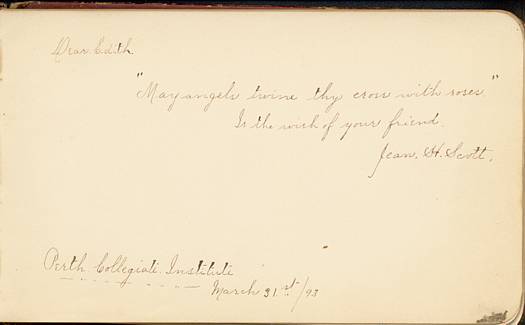 Dear Edith.
"May angels twine thy cross with roses"
Is the wish of your friend.
Jean. H. Scott.
Perth Collegiate Institute
March 31st/93